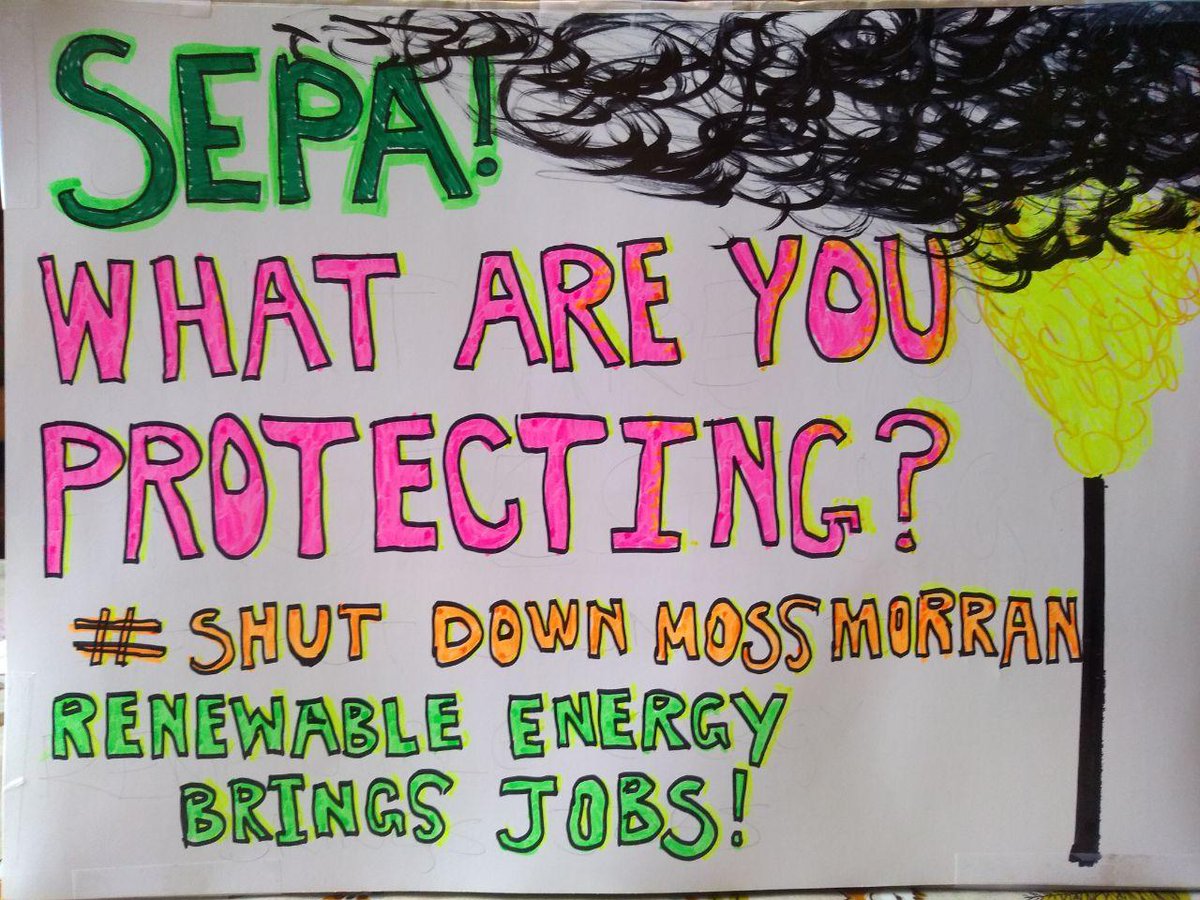 SEPA!
WHAT ARE YOU
PROTECTING?
# SHUT DOWN MOSSMORRAN
RENEWABLE ENERGY
BRINGS JOBS!